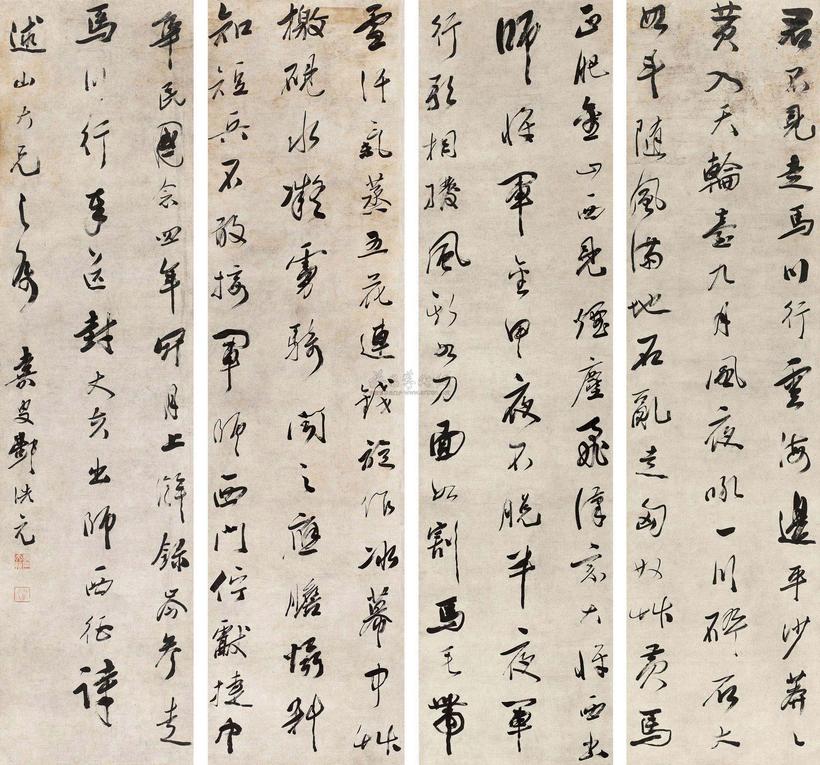 君不見走馬川行雪海邊平沙莽〻
黃入天輪臺九月風夜吼一川碎〻石大
如斗隨風滿地石亂走匈奴草黃馬
正肥金山西見煙塵飛漢家大將西出
師將軍金甲夜不脫半夜軍
行戈相撥風頭如刀面如割馬毛帶
雪汗氣蒸五花連錢旋作冰幕中草
檄硯水凝虜騎聞之應膽懾料
知短兵不敢接軍師西門佇獻捷中
華民國念四年月上澣錄岑參走
馬川行奉送封大夫出師西征詩
山大兄之屬 叟洪元